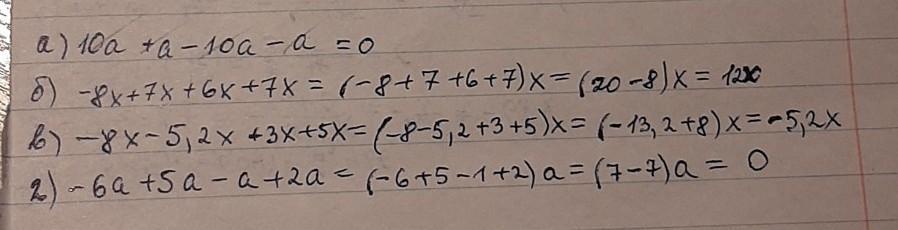 а) 10a + a - 10a - a = 0
б) -8x + 7x + 6x + 7x = (-8 + 7 + 6 + 7)x = (20 - 8)x = 12x
в) -8x - 5,2x + 3x + 5x = (-8 - 5,2 + 3 + 5)x = (-13,2 + 8)x = -5,2x
г) -6a + 5a - a + 2a = (-6 + 5 - 1 + 2)a = (7 - 7)a = 0